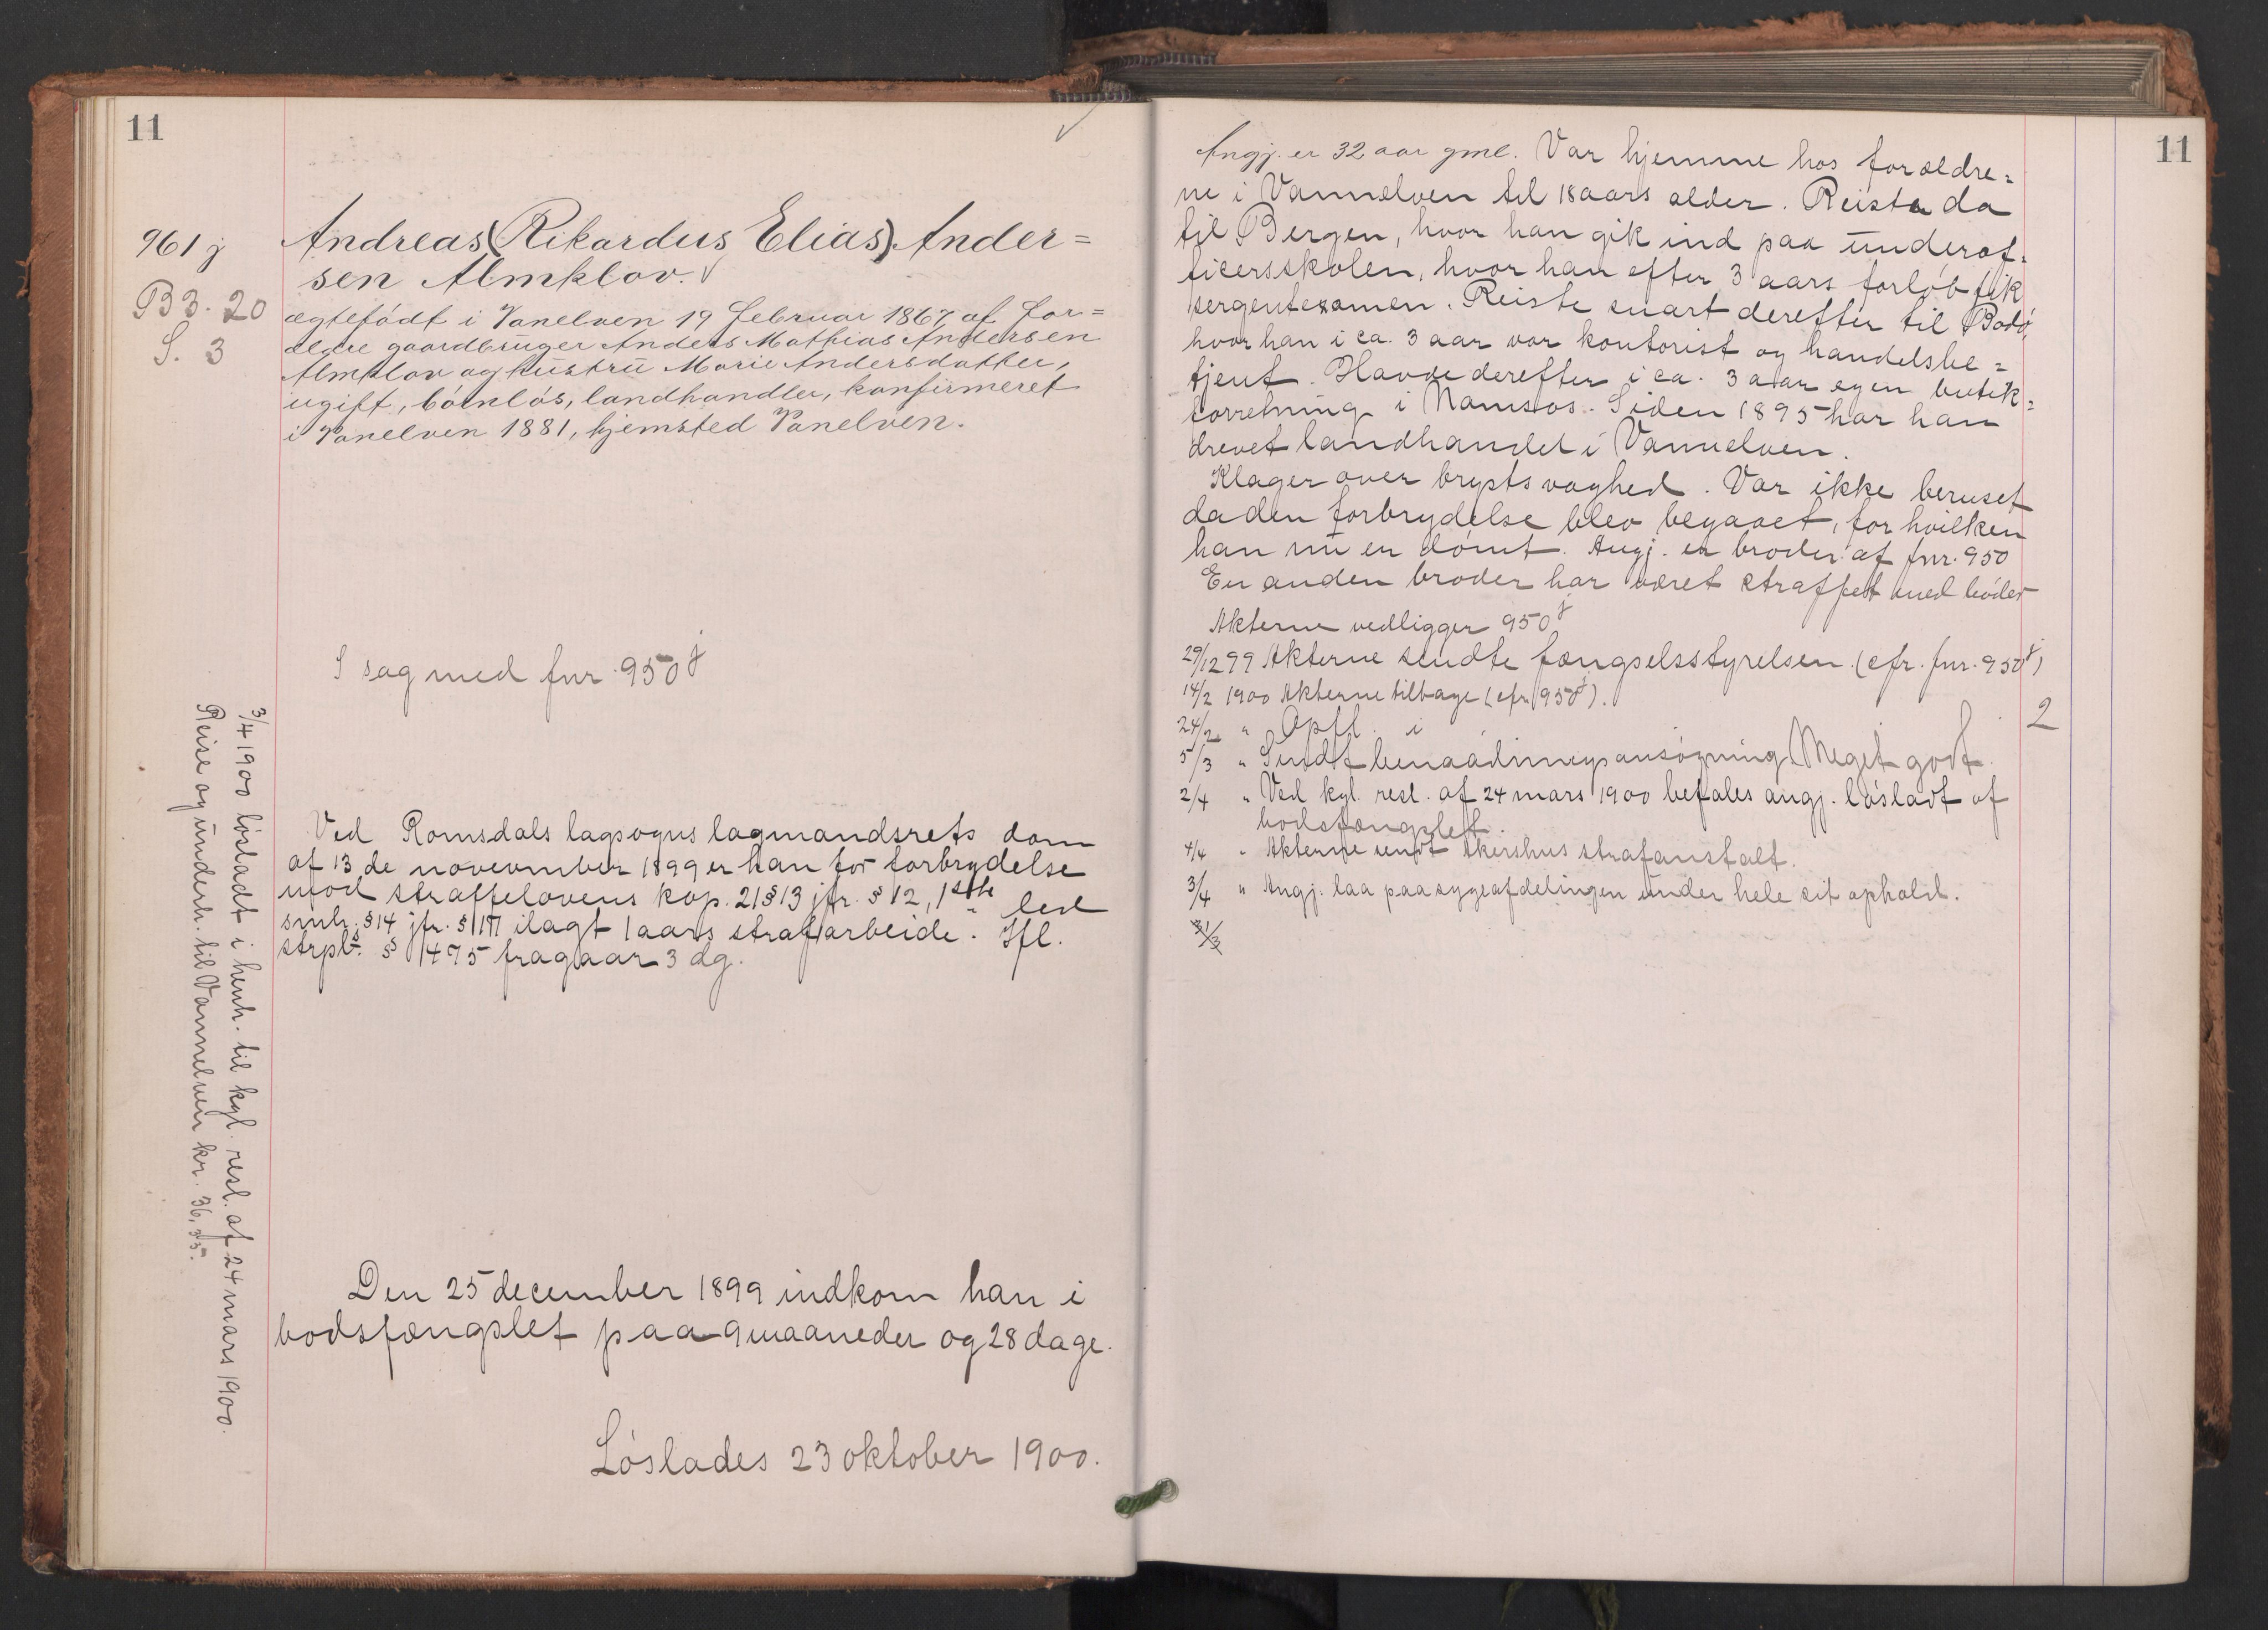 11
961 j
B3. 20
S. 3
Andreas (Rikardus Elias) Ander=
sen Almklov.
ægtefödt i Vanelven 19 februar 1867 af For=
ældre gaardbruger Anders Mathias Andersen
Almklov og hustru Marie Andersdatter,
ugift, börnlös, landhandler, konfirmeret
i Vanelven 1881, hjemsted Vanelven.
I sag med fnr. 950 j
Ved Romsdals lagsogns lagmandsrets dom
af 13 de november 1899 er han for forbrydelse
mod straffelovens kap. 21 § 13 jfr. § 12, 1ste led
smh. § 14 jfr. § 1 ilagt 1 aars strafarbeide. Ifl.
strpls. § 475 fragaar 3 dg.
Den 25 december 1899 indkom han i
bodsfængslet paa 9 maaneder og 28 dage.
Löslades 23 oktober 1900.
3/4 1900 lösladt i henh. til kgl. resl. af 24 mars 1900.
Reise og underh. til Vannelven kr. 36,35.
11
Angj. er 32 aar gml. Var hjemme hos forældre=
ne i Vannelven til 18 aars alder. Reiste da
til Bergen, hvor han gik ind paa underof=
ficersskolen, hvor han efter 3 aars forlöb fik
sergentexamen. Reiste snart derefter til Bodö,
hvor han i ca. 3 aar var kontorist og handelsbe=
tjent. Havde derefter i ca. 3 aar egen butik=
forretning i Namsos. Siden 1895 har han
drevet landhandel i Vannelven.
Klager over brystsvaghed. Var ikke beruset
da den forbrydelse blev begaaet, for hvilken
han nu er dömt. Angj. er broder af fnr. 950
En anden broder har været straffet med böder
Akterne vedligger 950 j
29/12 99 Akterne sendte fængselsstyrelsen (cfr. fnr. 950 j)
14/2 1900 Akterne tilbage (cfr. 950 j).
24/2 " Opfl. i 2
5/3 " Sendt benaadningsansögning. Meget godt.
2/4 " Ved kgl. resl. af 24 mars 1900 befales angj. lösladt af
bodsfængslet.
4/4 " Akterne sendt Akershus strafanstalt.
3/4 " Angj. laa paa sygeafdelingen under hele sit ophold.